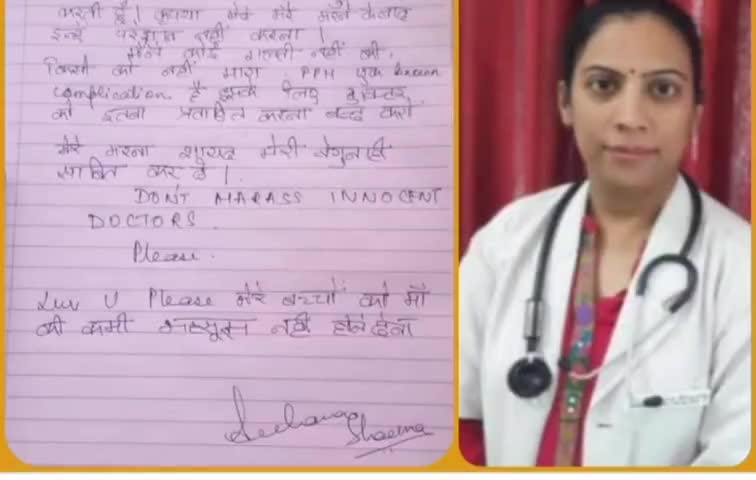 करती हूँ। कृपया मेरे मेरे मरने के बाद
इन्हें परेशान नहीं करना।
मैंने कोई गलती नहीं की,
किसी को नहीं मारा. PPH एक known
complication है इसके लिए डॉक्टर
को इतना प्रताड़ित करना बन्द करो.
मेरा मरना शायद मेरी बेगुनाही
साबित कर दे।
DON'T HARASS INNOCENT
DOCTORS.
Please.
Luv U Please मेरे बच्चों को माँ
की कमी महसूस नहीं होने देना
Archana
Sharma